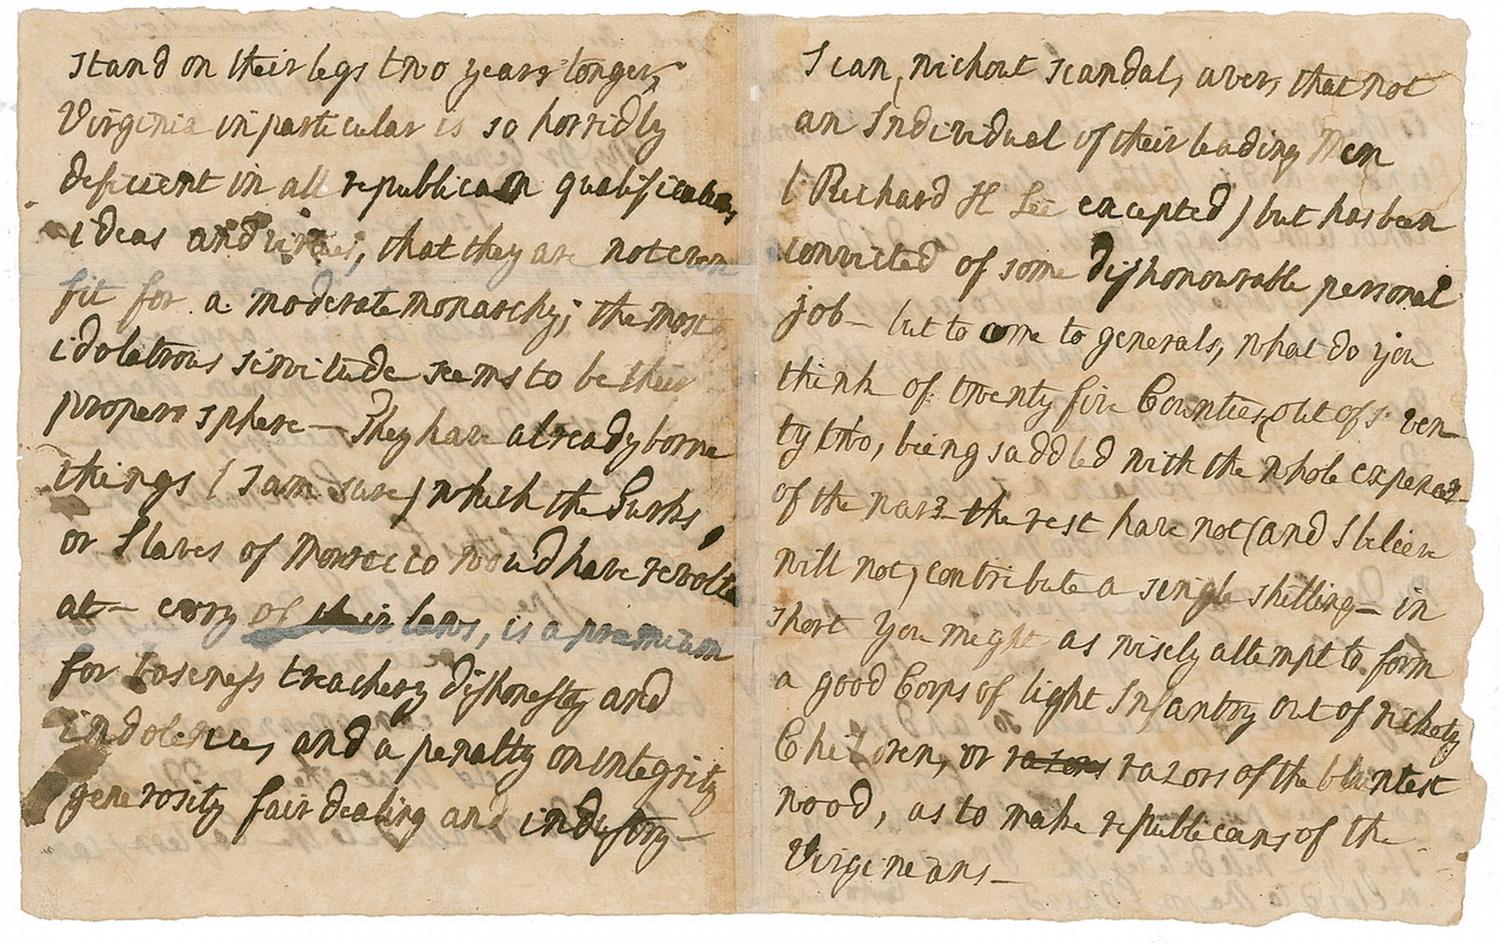 stand on their legs two years longer,
Virginia in particular is so horridly
deficient in all republican qualifications
ideas and virtues, that they are not even
fit for a moderate monarchy; the most
idolatrous servitude seems to be their
proper sphere — They have already borne
things (I am sure) which the Turks
or Slaves of Morocco would have revolted
at — every of their laws, is a premium
for baseness treachery dishonesty and
indolence, and a penalty on integrity
generosity fair dealing and industry —
I can, without scandal, aver, that not
an Individual of their leading Men
(Richard H Lee excepted) but has been
convicted of some dishonourable personal
job — but to come to generals, what do you
think of twenty five Counties, out of seven
ty two, being saddled with the whole expence
of the war? the rest have not (and I believe
will not) contribute a single shilling — in
short you might as wisely attempt to form
a good Corps of light Infantry out of rickety
Children, or razors razors of the bluntest
wood, as to make republicans of the
Virgineans —